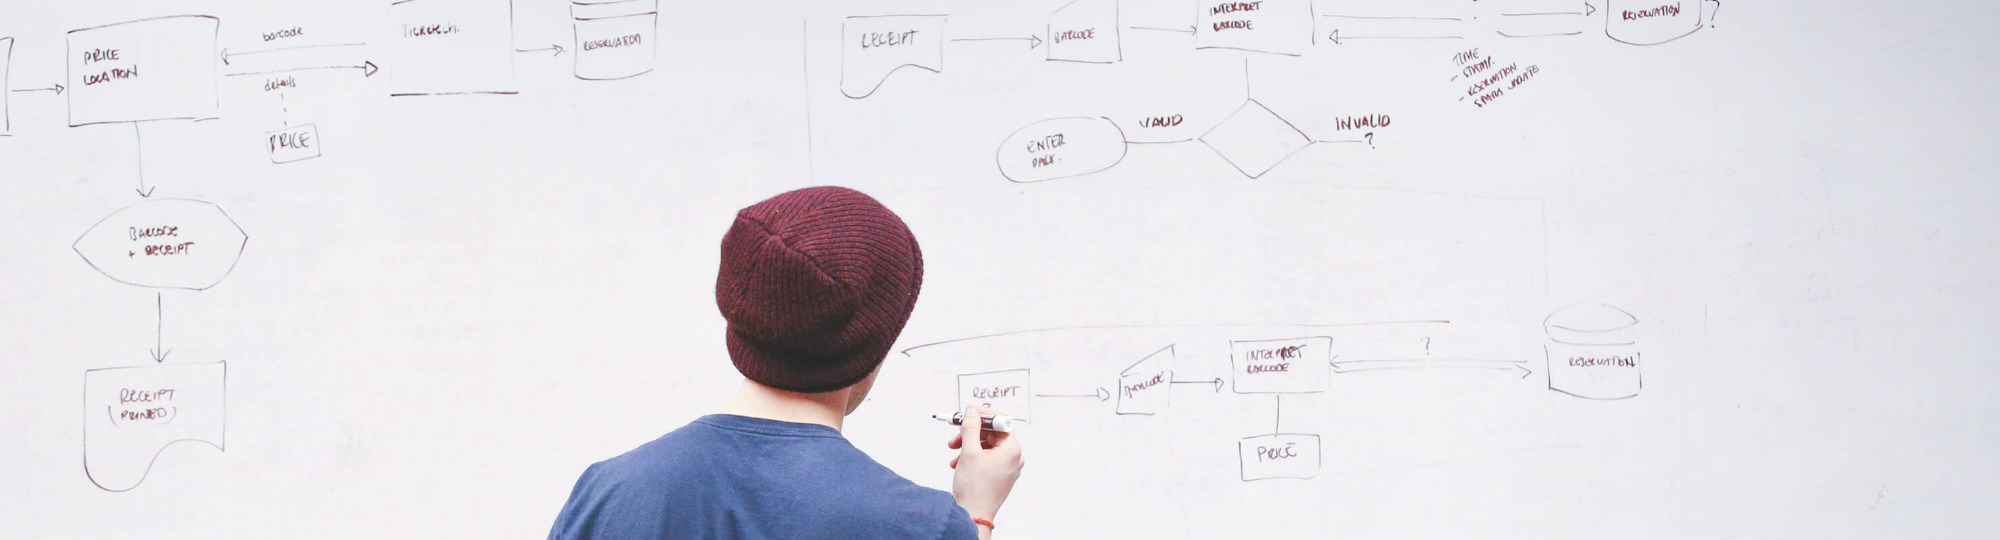 PRICE
LOCATION
barcode
details
PRICE
Ticketech.
RESERVATION
BARCODE
+ RECEIPT
RECEIPT
(PRINTED)
RECEIPT
BARCODE
INTERPRET
BARCODE
RESERVATION
?
TIME
- STAMP.
- RESERVATION
STATUS UPDATE
VALID
INVALID
?
ENTER
PARK.
RECEIPT
?
BARCODE
INTERPRET
BARCODE
?
RESERVATION
PRICE